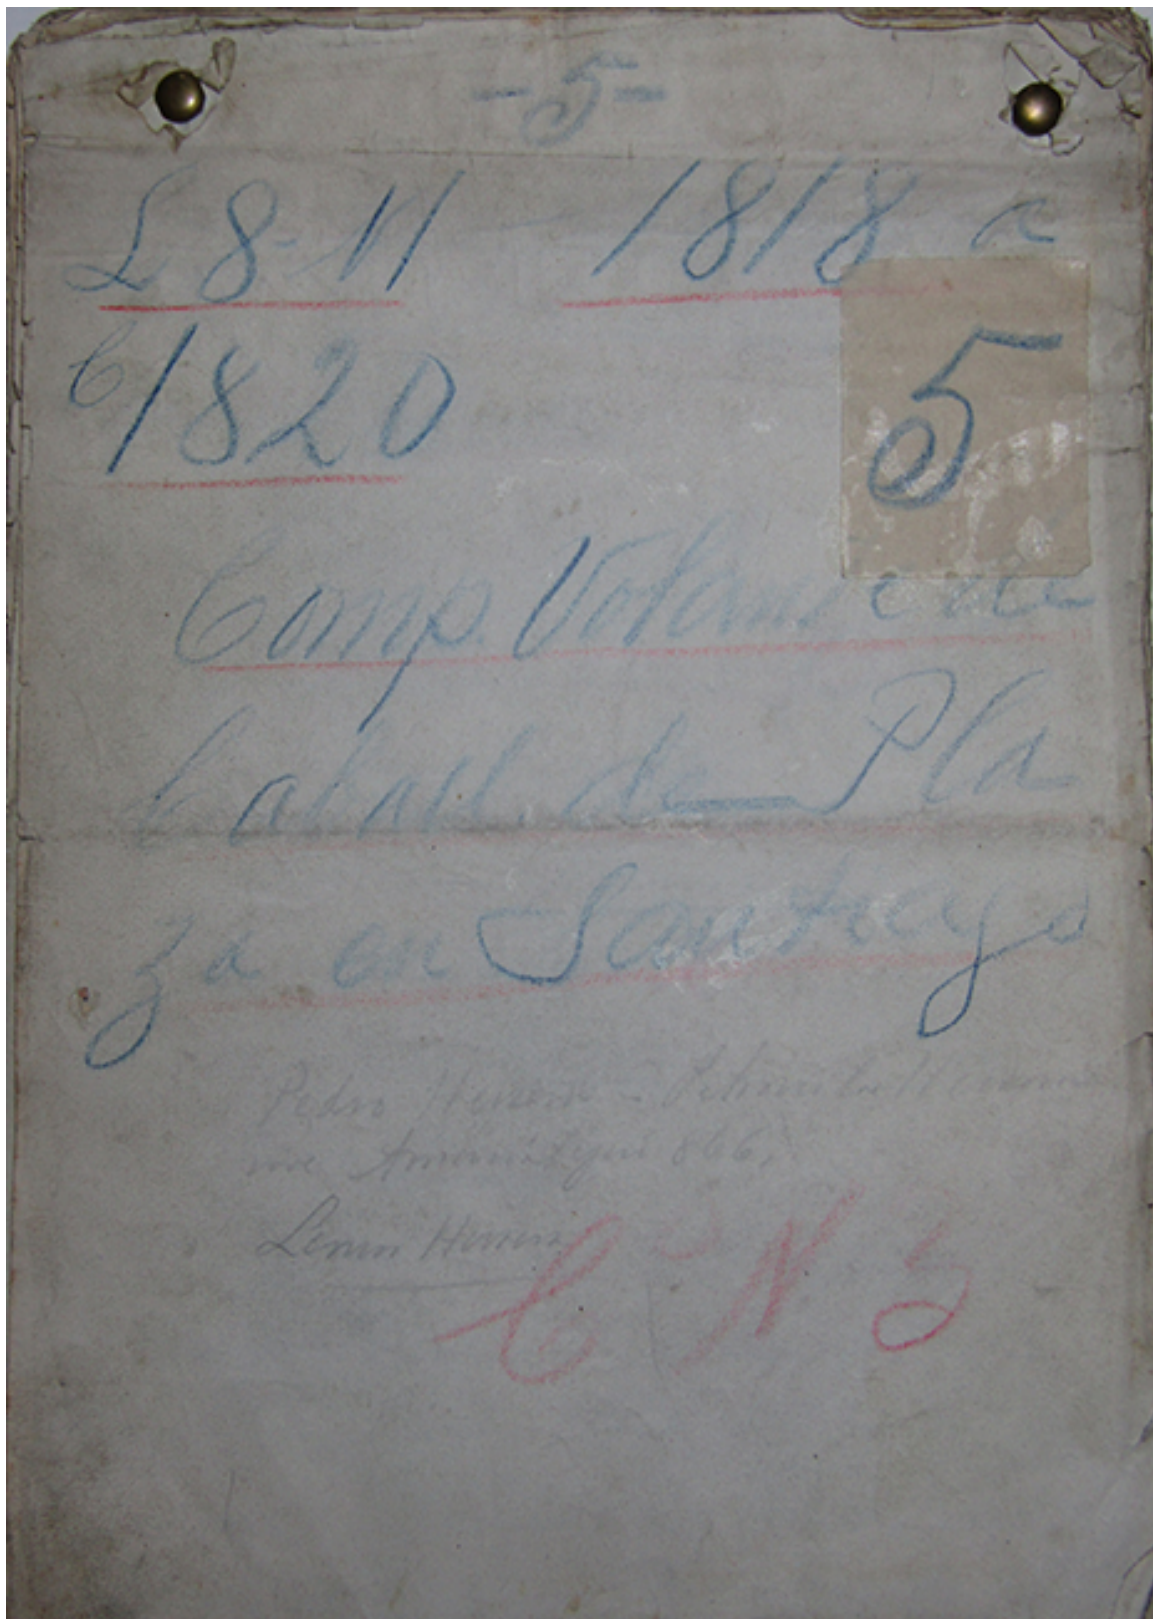 -5-
L 8-11 - 1818 a
1820
5
Comp. Volante de
Caball. de Pla
za en Santiago
Pedro Herrera -
866.
C N 5